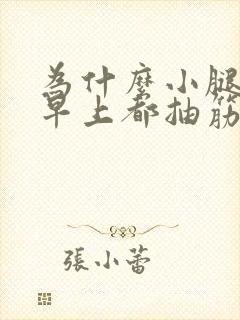 为什麼小腿
早上都抽筋
張小蕾